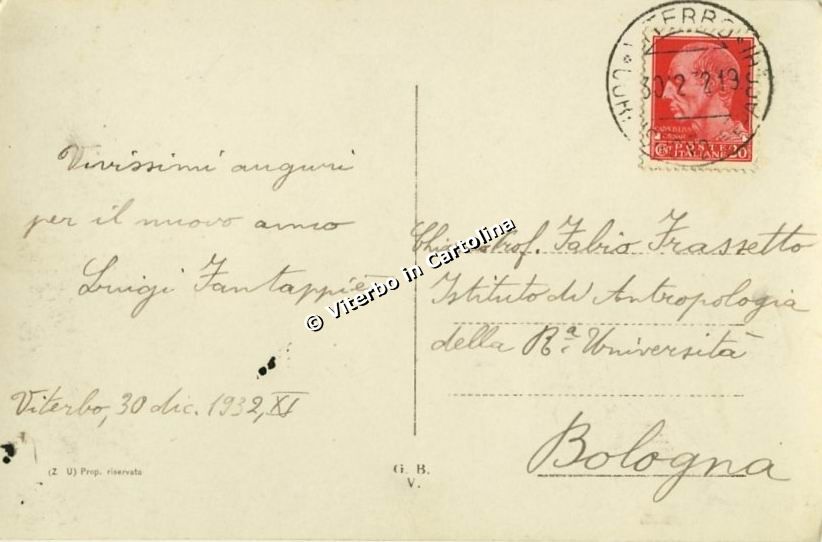 Vivissimi auguri
per il nuovo anno
Luigi Fantappiè
Viterbo, 30 dic. 1932, XI
(Z U) Prop. riservata
G. B.
V.
© Viterbo in Cartolina
VITERBO
30 12
POSTE
ITALIANE
CENT 20
Prof. Fabio Frassetto
Istituto di Antropologia
della R.a Università
Bologna